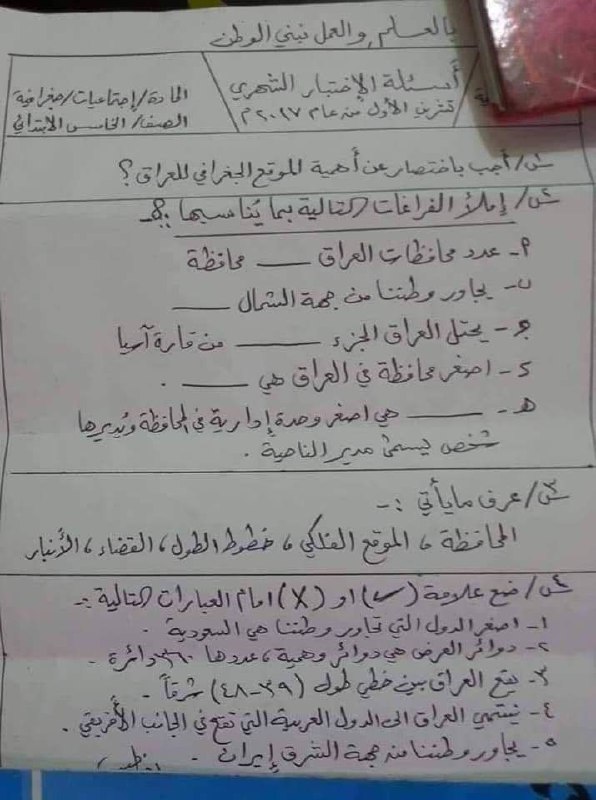 بالعلم والعمل نبني الوطن
المادة/إجتماعيات/جغرافية
الصف/الخامس الابتدائي
أسئلة الإختبار الشهري
تشرين الأول من عام ٢٠٢٧م
س١/ أجب باختصار عن أهمية الموقع الجغرافي للعراق؟
س٢/ إملأ الفراغات التالية بما يُناسبها :-
٩- عدد محافظات العراق ____ محافظة
ب- يجاور وطننا من جهة الشمال ____
ج- يحتل العراق الجزء ____ من قارة آسيا
د- اصغر محافظة في العراق هي ____ .
هـ- ____ هي اصغر وحدة إدارية في المحافظة ويُديرها
شخص يسمى مدير الناحية .
س٣/ عرف ما يأتي :-
المحافظة ، الموقع الفلكي ، خطوط الطول ، القضاء ، الأنبار
س٤/ ضع علامة (✓) او (X) امام العبارات التالية :-
١- اصغر الدول التي تجاور وطننا هي السعودية .
٢- دوائر العرض هي دوائر وهمية ، عددها ٣٦٠ دائرة .
٣- يقع العراق بين خطي طول (٣٩-٤٨) شرقاً .
٤- ينتمي العراق الى الدول العربية التي تقع في الجانب الأفريقي .
٥- يجاور وطننا من جهة الشرق إيران .